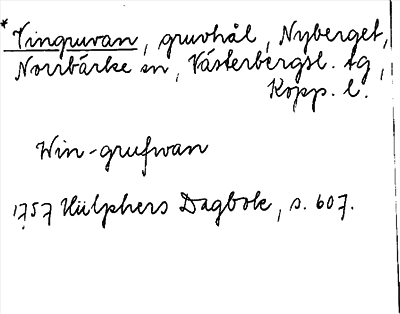 * Vingruvan, gruvhål, Nyberget,
Norrbärke sn, Västerbergsl. tg,
Kopp. l.
Win-grufwan
1757 Hülphers Dagbok, s. 607.